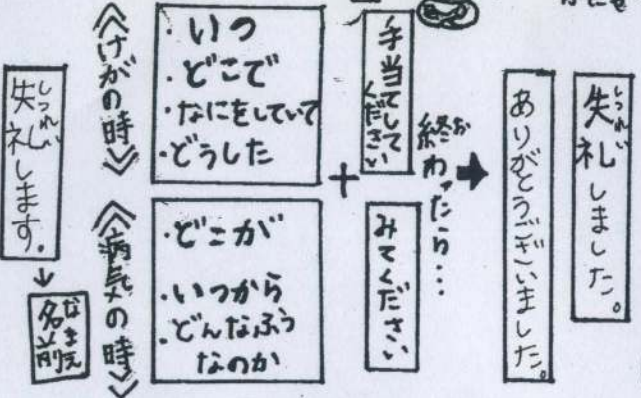 失礼します。
しつれい
名前
なまえ
《けがの時》
・いつ
・どこで
・なにをしていて
・どうした
《病気の時》
・どこが
・いつから
・どんなふう
なのか
+
手当てして
ください
みてください
終わったら・・・
お
ありがとうございました。
失礼しました。
しつれい